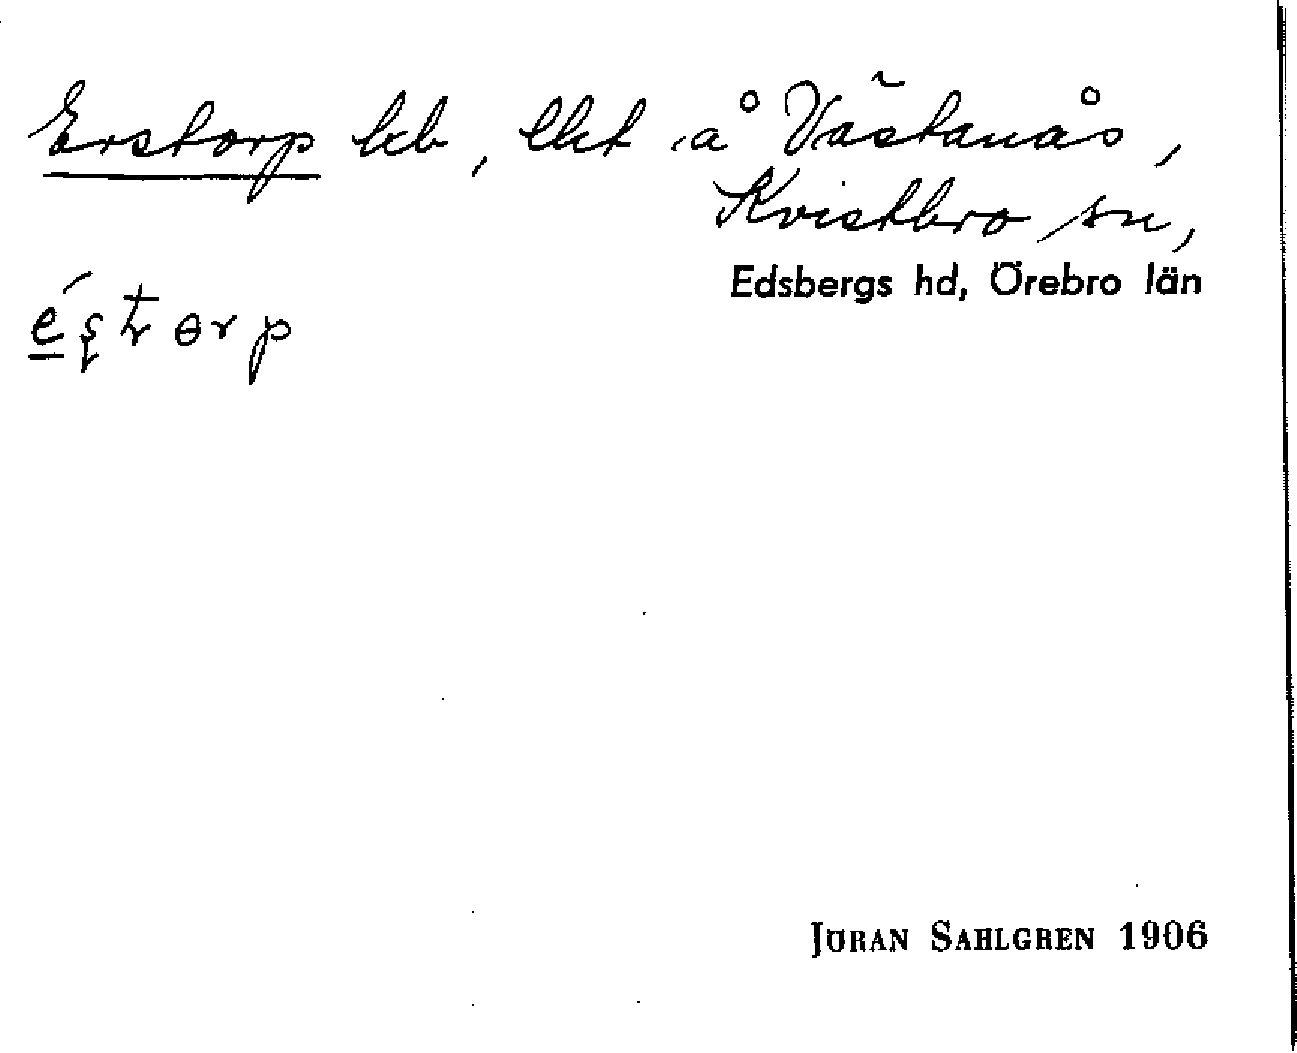 Erstorp lct å Västanås,
Kvistbro sn,
Edsbergs hd, Örebro län
JÖRAN SAHLGREN 1906